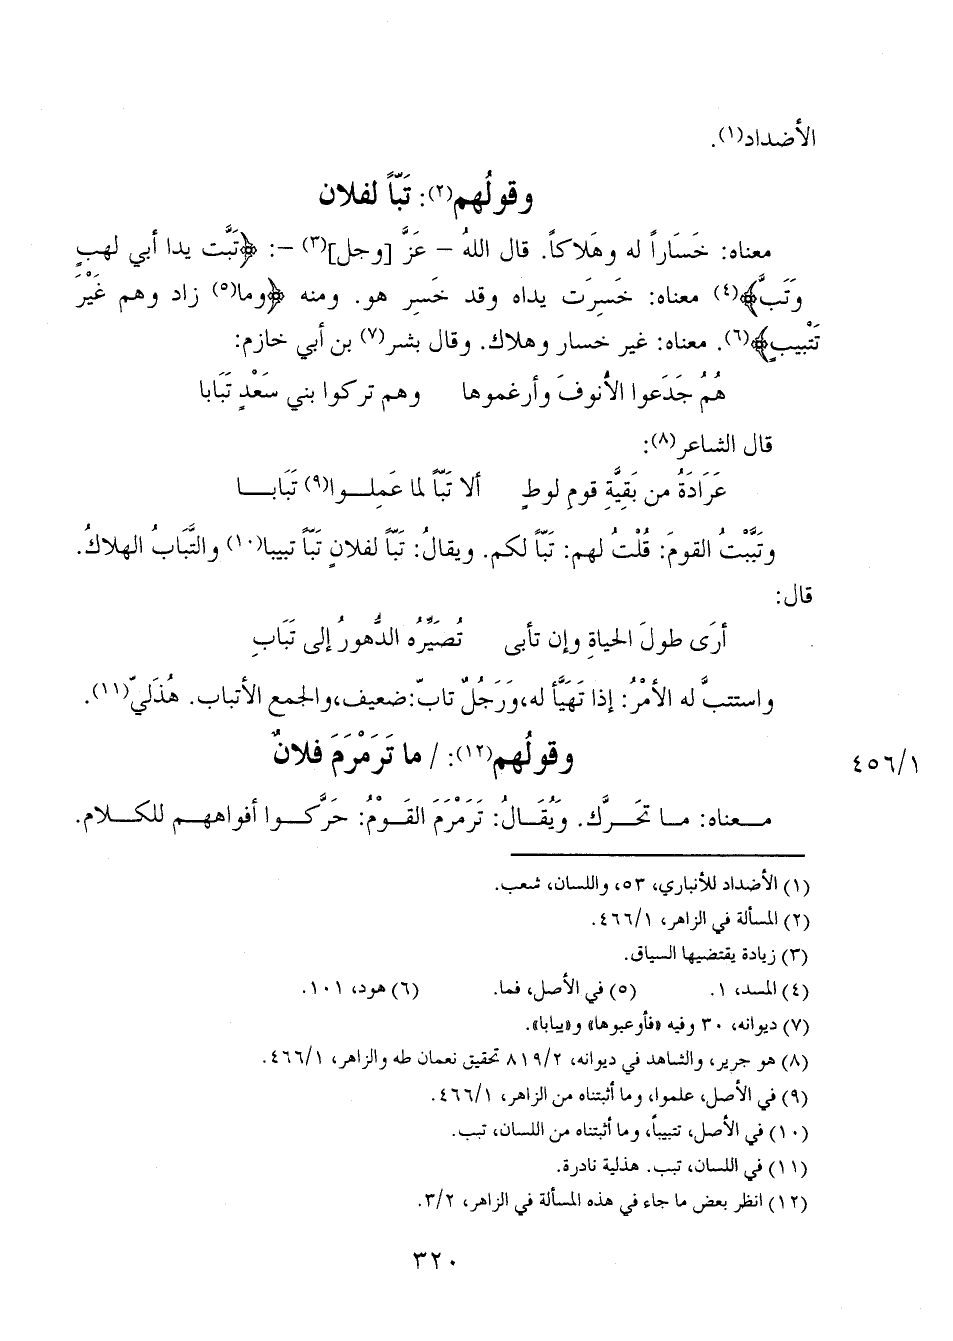 الأضداد(١).
وقولُهم(٢): تَبّاً لفلان
معناه: خَسَاراً له وهَلاكاً. قال اللهُ – عَزَّ [وجل](٣) –: ﴿تَبَّت يدا أبي لهبٍ
وَتَبَّ﴾(٤) معناه: خَسِرَت يداه وقد خَسِر هو. ومنه ﴿وما(٥) زاد وهم غَيْرَ
تَتْبيبٍ﴾(٦). معناه: غير خسار وهلاك. وقال بشر(٧) بن أبي خازم:
هُمُ جَدَعوا الأُنوفَ وأرغموها وهم تركوا بني سَعْدٍ تَبَابا
قال الشاعر(٨):
عَرَادَةُ من بَقِيَّةِ قومِ لوطٍ ألا تَبّاً لما عَمِلـــوا(٩) تَبَابــا
وتَبَّبْتُ القومَ: قُلْتُ لهم: تَبّاً لكم. ويقالُ: تَبّاً لفلانٍ تَبّاً تبيبا(١٠) والتَّبَابُ الهلاكُ.
قال:
أرَى طولَ الحياةِ وإن تأبى تُصَيِّرُه الدُّهورُ إلى تَبَابِ
واستتبَّ له الأمْرُ: إذا تَهَيَّأ له،ورَجُلٌ تابّ:ضعيف،والجمع الأتباب. هُذَليّ(١١).
وقولُهم(١٢): / ما تَرَمْرَمَ فلانٌ
٤٥٦/١
مــعناه: مــا تَحَــرَّك. ويُقَــالُ: تَرَمْرَمَ القــومُ: حَرَّكــوا أفواههــم للكــلام.
(١) الأضداد للأنباري، ٥٣، واللسان، شعب.
(٢) المسألة في الزاهر، ٤٦٦/١.
(٣) زيادة يقتضيها السياق.
(٤) المسد، ١. (٥) في الأصل، فما. (٦) هود، ١٠١.
(٧) ديوانه، ٣٠ وفيه «فأوعبوها» و«يبابا».
(٨) هو جرير، والشاهد في ديوانه، ٨١٩/٢ تحقيق نعمان طه والزاهر، ٤٦٦/١.
(٩) في الأصل، علموا، وما أثبتناه من الزاهر، ٤٦٦/١.
(١٠) في الأصل، تتبيباً، وما أثبتناه من اللسان، تبب.
(١١) في اللسان، تبب. هذلية نادرة.
(١٢) انظر بعض ما جاء في هذه المسألة في الزاهر، ٣/٢.
٣٢٠